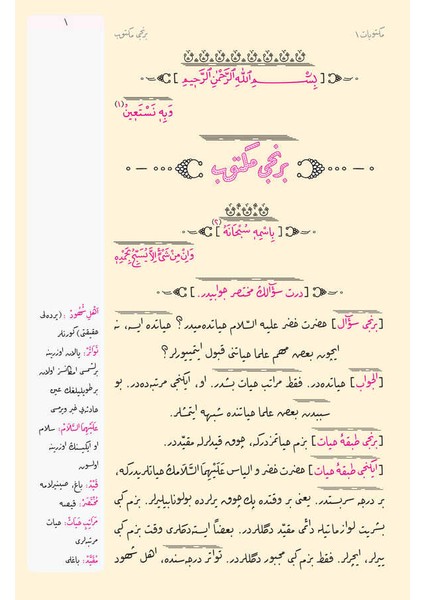 مكتوبات ١
برنجی مكتوب
١
[ بِسْمِ اللّٰهِ الرَّحْمٰنِ الرَّحِيمِ ]
وَبِهِ نَسْتَعِينُ (١)
برنجی مكتوب
[ بِاسْمِهِ سُبْحَانَهُ (٢) ]
وَاِنْ مِنْ شَيْءٍ اِلَّا يُسَبِّحُ بِحَمْدِهِ
[ درت سؤالك مختصر جوابيدر. ]
[برنجی سؤال] حضرت خضر عليه السلام حياتده‌ميدر؟ حياتده ايسه، نه
ايچون بعضه مهم علما حياتنی قبول ايتميورلر؟
[الجواب] حياتده‌در. فقط مراتب حيات بشدر. او، ايكنجی مرتبه‌ده‌در. بو
سببدن بعضه علما حياتنده شبهه ايتمشلر.
[برنجی طبقۀ حيات] بزم حياتمزدركه، چوق قيدلرله مقيددر.
[ايكنجی طبقۀ حيات] حضرت خضر و الياس عَلَيْهِمَا السَّلَامك حياتلريدركه،
بر درجه سربستدر. يعنی بر وقتده پك چوق يرلرده بولونابيليرلر. بزم كبی
بشريت لوازماتيله دائمی مقيد دگللردر. بعضاً ايسته‌دكلری وقت بزم كبی
ييرلر، ايچرلر. فقط بزم كبی مجبور دگللردر. تواتر درجه‌سنده، اهل شهود
اَهْلِ شُهُودْ : (پرده‌لی
حقيقتی) كورنلر
تَوَاتُرْ: يالان اوزرينه
برلشمسی امكانسز اولان
بر طوپليلغك عين
حادثه‌یی خبر ويرمسی
عَلَيْهِمَا السَّلَامْ: سلام
او ايكيسنك اوزرينه
اولسون
قَيْدْ: باغ، صينيرلامه
مُخْتَصَرْ: قيصه
مَرَاتِبِ حَيَاتْ: حيات
مرتبه‌لری
مُقَيَّدْ: باغلی